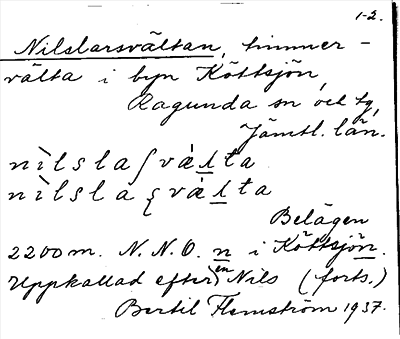 1-2.
Nilslarsvältan, timmer-
välta i byn Köttsjön,
Ragunda sn och tg,
Jämtl. län.
nìlslaʃvàʌta
nìlslaʂvàʌta
Belägen
2200m. N.N.O. n i Köttsjön.
Uppkallad efter en Nils (forts.)
Bertil Flemström 1937.